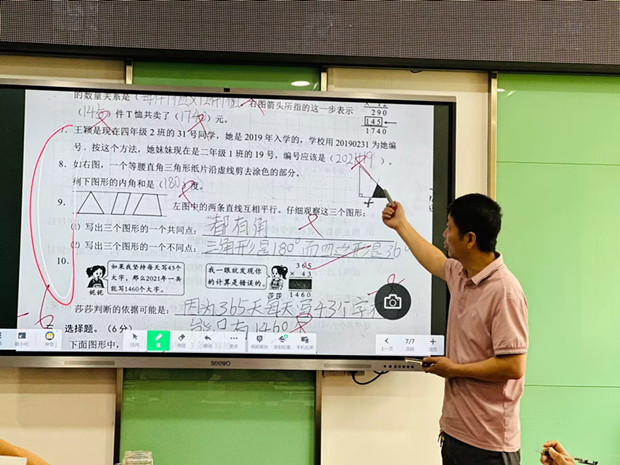 的数量关系是（ 右图箭头所指的这一步表示
（145）件T恤共卖了（1740）元。
290
145
1740
7. 王颖是现在四年级2班的31号同学，她是2019年入学的，学校用20190231为她编
号。按这个方法，她妹妹现在是二年级1班的19号，编号应该是（ ）。
8. 如右图，一个等腰直角三角形纸片沿虚线剪去涂色的部分。
剩下图形的内角和是（180）度。
9. 左图中的两条直线互相平行。仔细观察这三个图形：
（1）写出三个图形的一个共同点：都有角
（2）写出三个图形的一个不同点：三角形是180°而四边形是36
10.
如果我坚持每天写43个
大字，那么2021年一共
能写1460个大字。
妮妮
我一眼就发现你
的计算是错误的。
莎莎
365
× 43
1460
莎莎判断的依据可能是：因为365天每天写43个字
能只有1460
-6
选择题。（6分）
下面图形中，
7/7
上一页
下一页
seewo